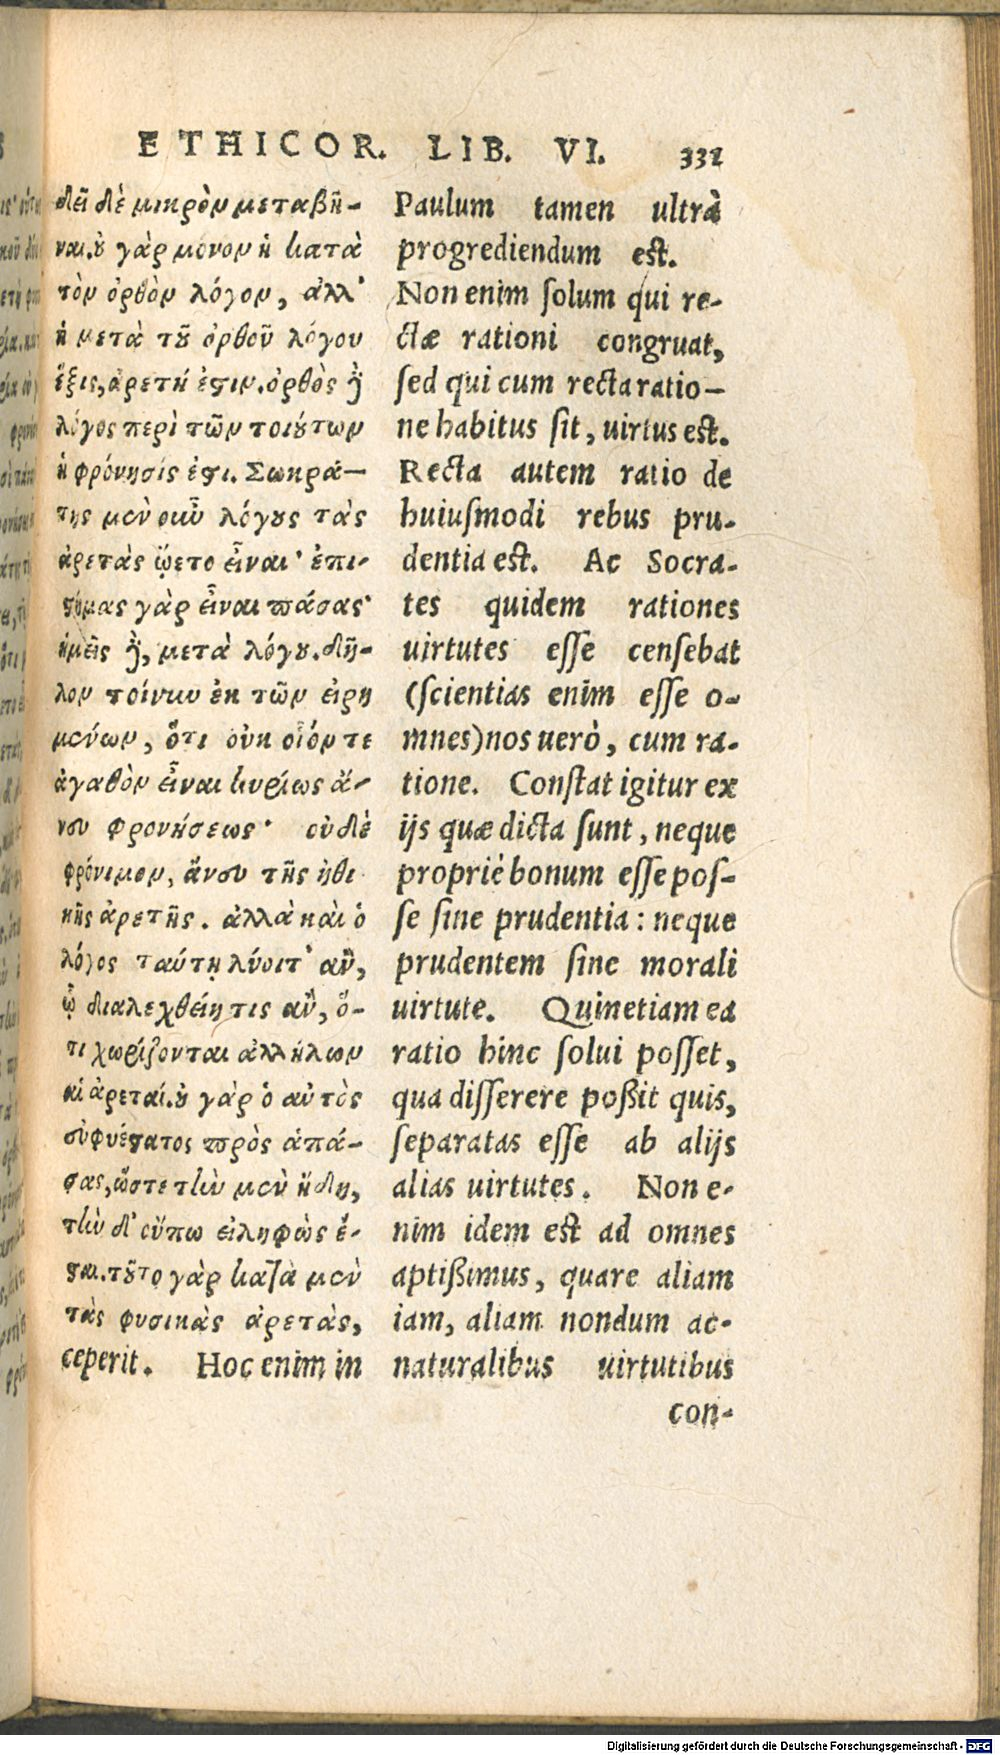 ETHICOR. LIB. VI. 331
δεῖ δὲ μικρὸν μεταβῆ-
ναι. ȣ γὰρ μόνον ἡ κατὰ
τὸν ὀρθὸν λόγον, ἀλλ᾽
ἡ μετὰ τȣ͂ ὀρθοῦ λόγου
ἕξις, ἀρετή ἐϛιν. ὀρθὸς δὲ
λόγος περὶ τῶν τοιȣ́των
ἡ φρόνησίς ἐϛι. Σωκρά-
της μὲν οὖν λόγȣς τὰς
ἀρετὰς ᾤετο εἶναι· ἐπι-
ϛήμας γὰρ εἶναι πάσας·
ἡμεῖς δὲ, μετὰ λόγȣ. δῆ-
λον τοίνυν ἐκ τῶν εἰρη
μένων, ὅτι οὐκ οἷόν τε
ἀγαθὸν εἶναι κυρίως ἄ-
νευ φρονήσεως· οὐδὲ
φρόνιμον, ἄνευ τῆς ἠθι
κῆς ἀρετῆς. ἀλλὰ καὶ ὁ
λόγος ταύτῃ λύοιτ᾽ ἂν,
ᾧ διαλεχθείη τις ἂν, ὅ-
τι χωρίζονται ἀλλήλων
αἱ ἀρεταί. ȣ γὰρ ὁ αὐτὸς
εὐφυέϛατος πρὸς ἁπά-
σας, ὥστε τὴν μὲν ἤδη,
τὴν δ᾽ οὔπω εἰληφὼς ἔ-
ϛαι. τȣ͂το γὰρ κατὰ μὲν
τὰς φυσικὰς ἀρετὰς,
Paulum tamen ultrà
progrediendum est.
Non enim solum qui re-
ctæ rationi congruat,
sed qui cum recta ratio-
ne habitus sit, uirtus est.
Recta autem ratio de
huiusmodi rebus pru-
dentia est. Ac Socra-
tes quidem rationes
uirtutes esse censebat
(scientias enim esse o-
mnes) nos uerò, cum ra-
tione. Constat igitur ex
ijs quæ dicta sunt, neque
propriè bonum esse pos-
se sine prudentia: neque
prudentem sine morali
uirtute. Quinetiam ea
ratio hinc solui posset,
qua disserere poßit quis,
separatas esse ab alijs
alias uirtutes. Non e-
nim idem est ad omnes
aptißimus, quare aliam
iam, aliam nondum ac-
ceperit. Hoc enim in naturalibus uirtutibus
con-
Digitalisierung gefördert durch die Deutsche Forschungsgemeinschaft - DFG